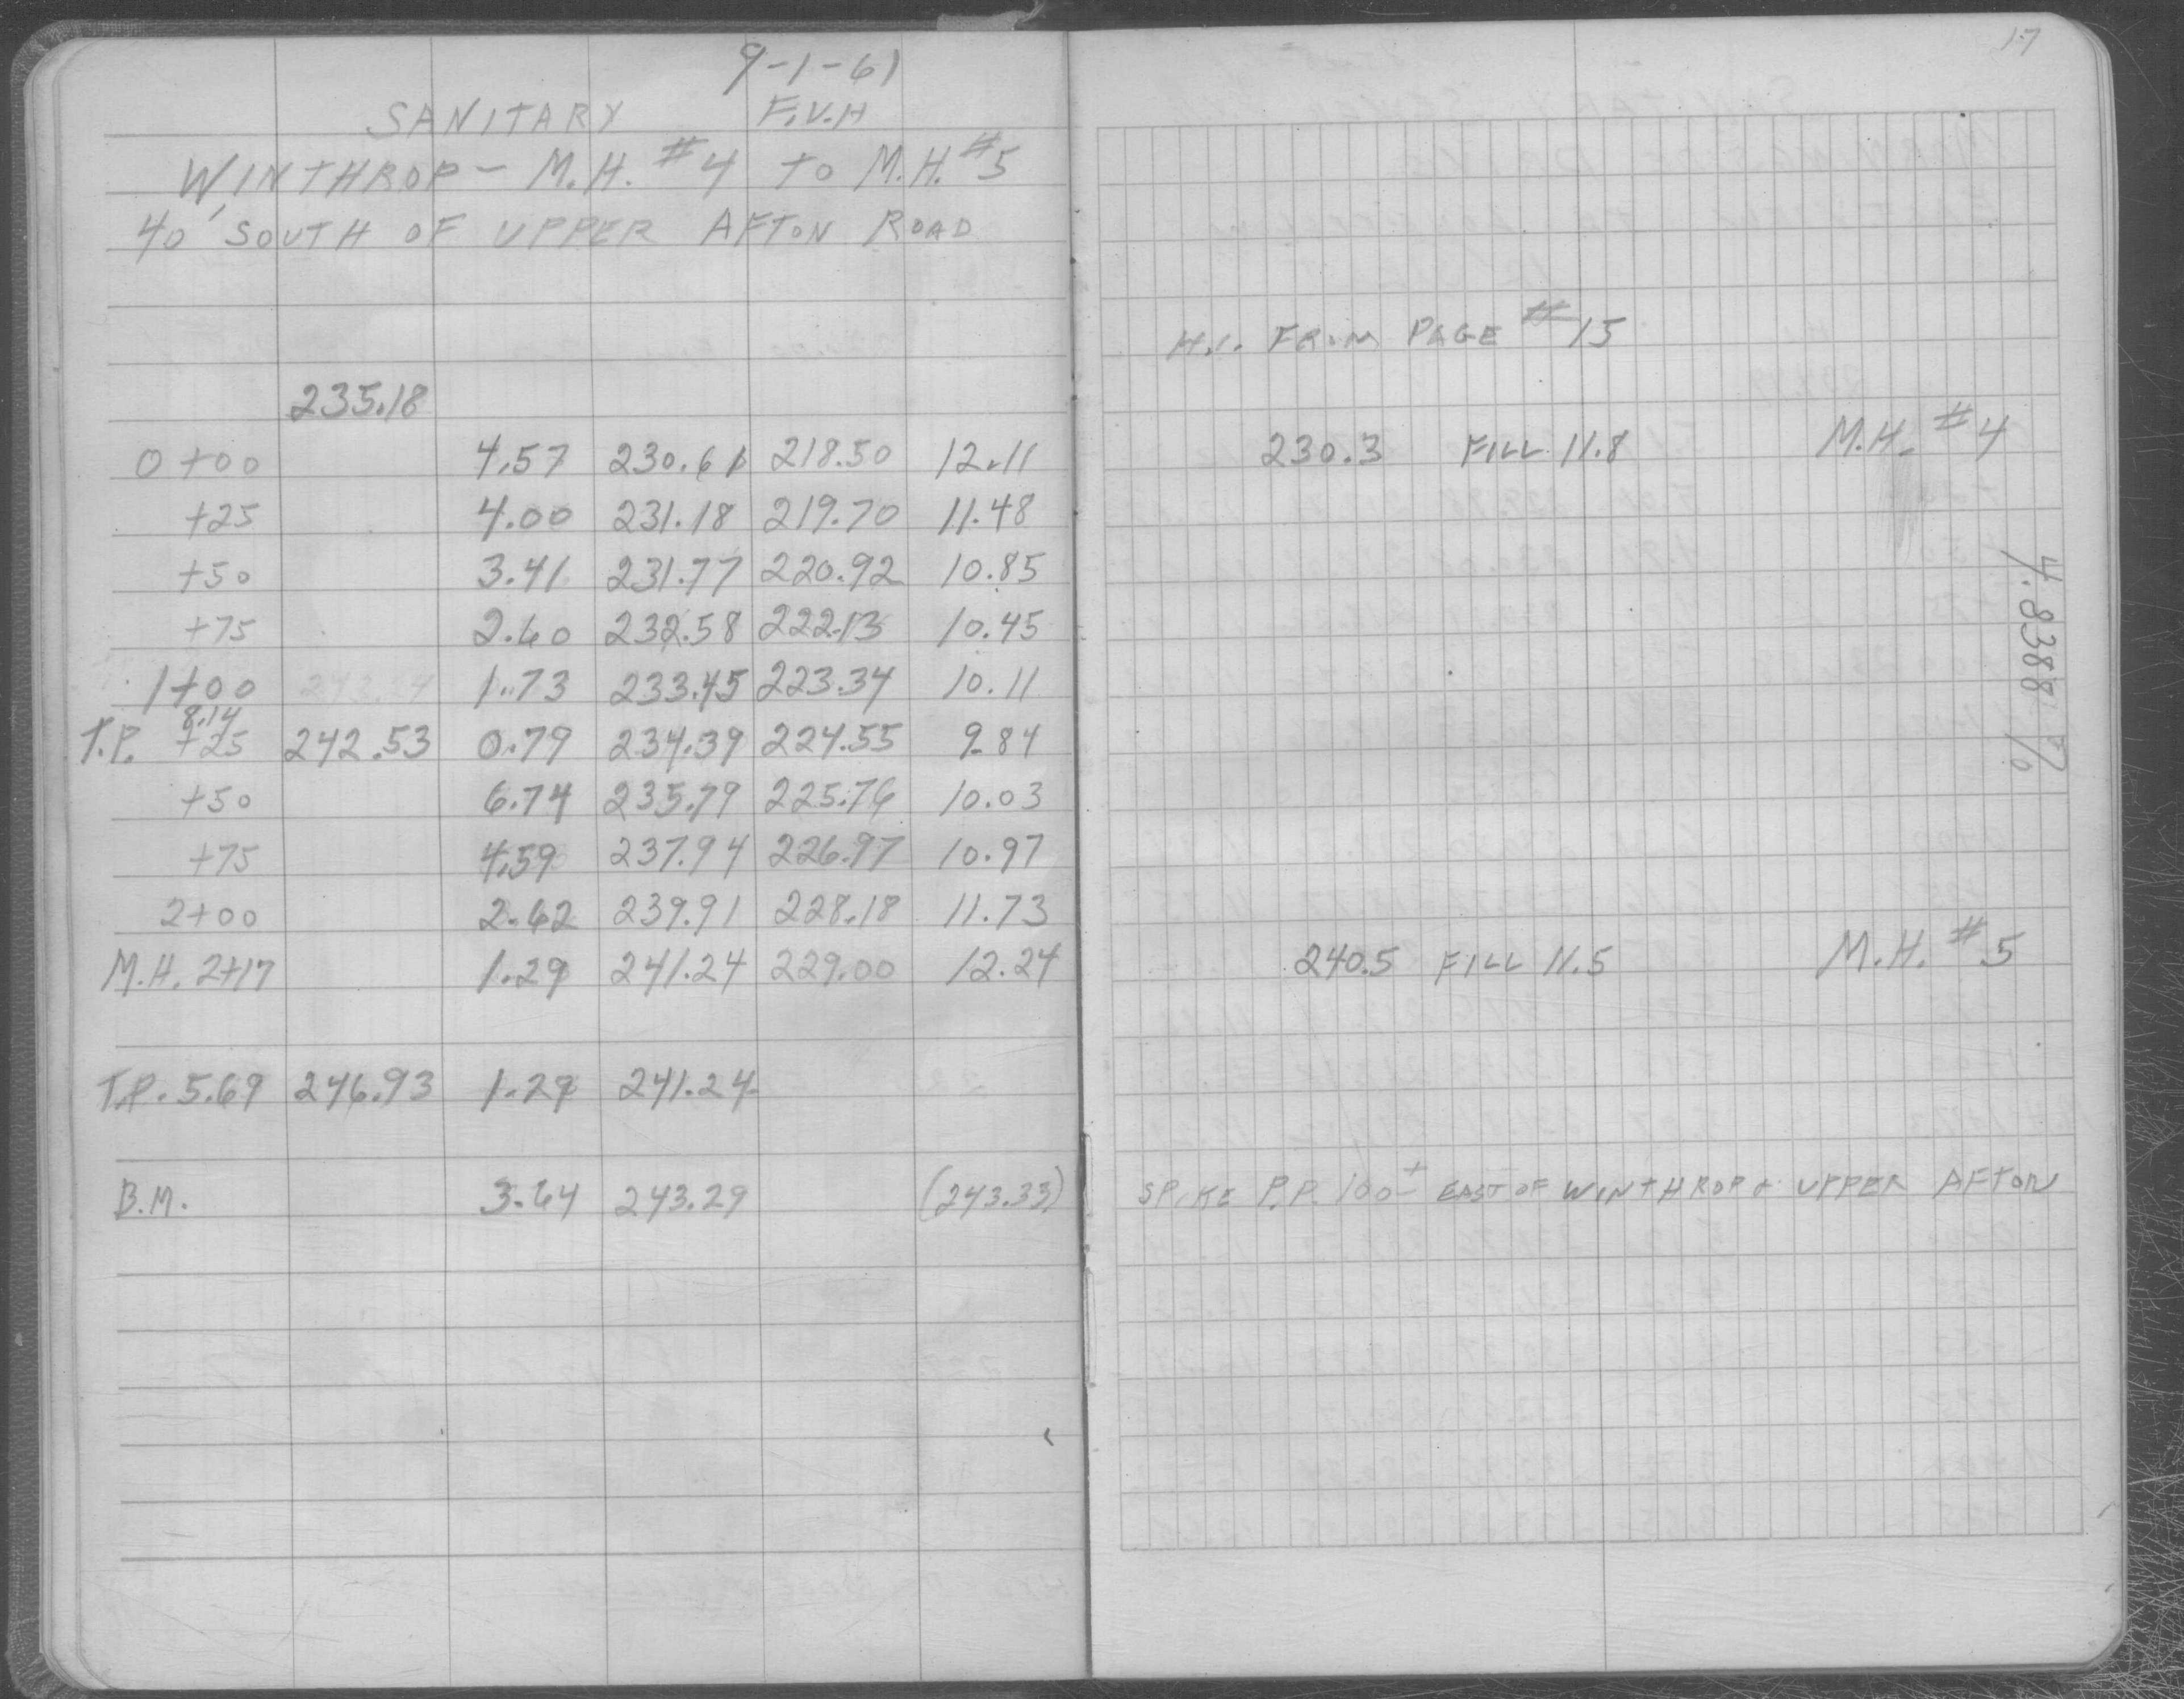 9-1-61
SANITARY F.V.H
WINTHROP - M.H. #4 to M.H. #5
40' SOUTH OF UPPER AFTON ROAD
235.18
0+00 4.57 230.61 218.50 12.11
+25 4.00 231.18 219.70 11.48
+50 3.41 231.77 220.92 10.85
+75 2.60 232.58 222.13 10.45
1+00 1.73 233.45 223.34 10.11
8.14
T.P. +25 242.53 0.79 234.39 224.55 9.84
+50 6.74 235.79 225.76 10.03
+75 4.59 237.94 226.97 10.97
2+00 2.62 239.91 228.18 11.73
M.H. 2+17 1.29 241.24 229.00 12.24
T.P. 5.69 246.93 1.29 241.24
B.M. 3.64 243.29 (243.33)
17
H.I. FROM PAGE #15
230.3 FILL 11.8 M.H. #4
4.8388 %
240.5 FILL 11.5 M.H. #5
SPIKE P.P. 100± EAST OF WINTHROP & UPPER AFTON